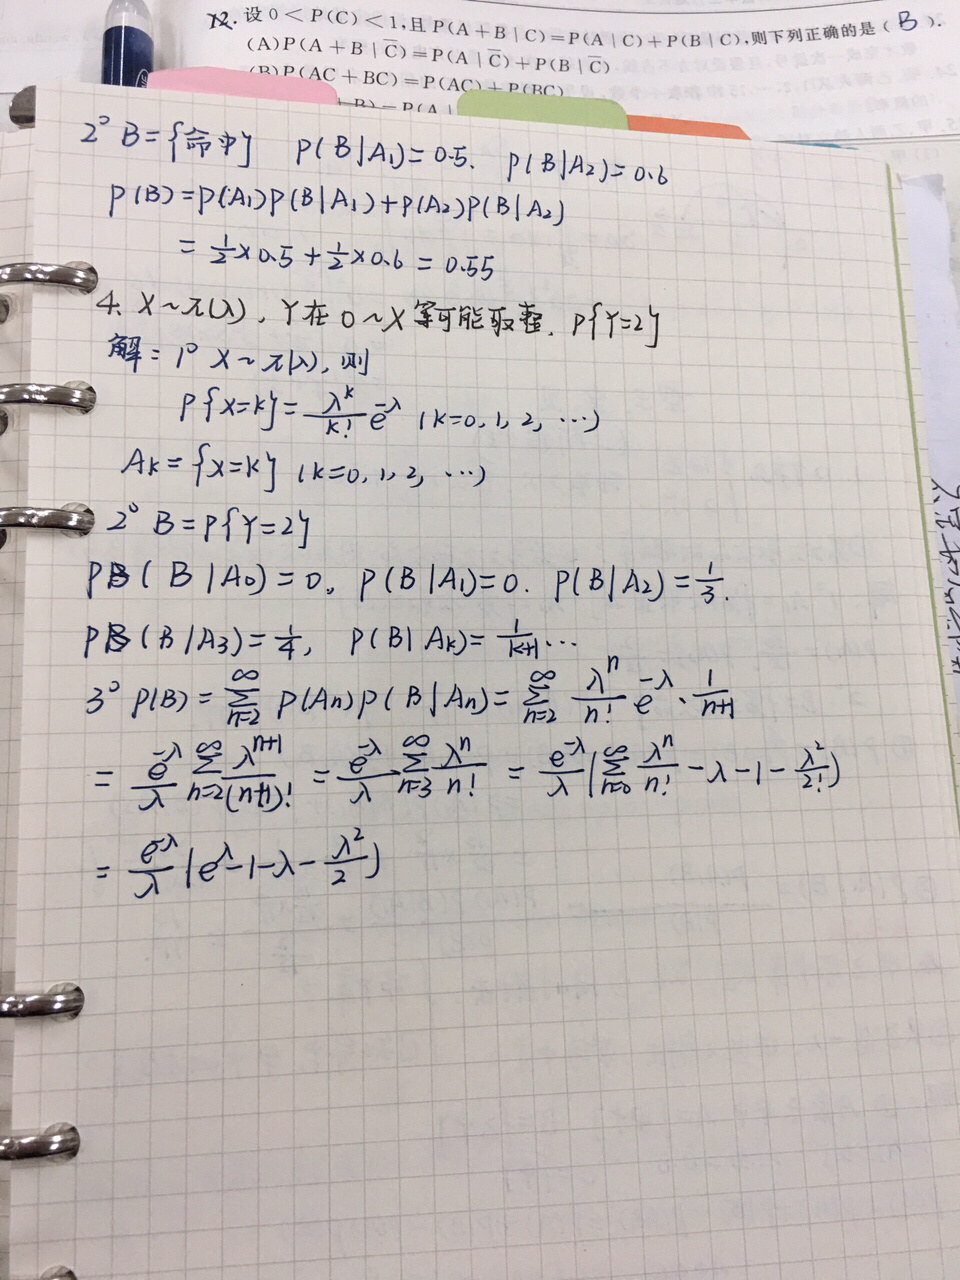 12. 设0<P(C)<1,且P(A+B|C)=P(A|C)+P(B|C),则下列正确的是( B ).
(A)P(A+B|C̅)=P(A|C̅)+P(B|C̅)
(B)P(AC+BC)=P(AC)+P(BC)
+B)=P(A
2° B={命中} P(B|A₁)=0.5. P(B|A₂)=0.6
P(B)=P(A₁)P(B|A₁)+P(A₂)P(B|A₂)
= 1/2×0.5+1/2×0.6=0.55
4. X~π(λ), Y在0~X等可能取整. P{Y=2}
解: 1° X~π(λ), 则
P{X=k}=λ^k/k! e^-λ (k=0,1,2,…)
Ak={X=k} (k=0,1,2,…)
2° B=P{Y=2}
P(B|A₀)=0, P(B|A₁)=0. P(B|A₂)=1/3.
P(B|A₃)=1/4, P(B|Ak)=1/(k+1)…
3° P(B)=∑_{n=2}^∞ P(An)P(B|An)=∑_{n=2}^∞ λ^n/n! e^-λ·1/(n+1)
= e^-λ/λ ∑_{n=2}^∞ λ^{n+1}/(n+1)! = e^-λ/λ ∑_{n=3}^∞ λ^n/n! = e^-λ/λ(∑_{n=0}^∞ λ^n/n! -λ-1-λ²/2!)
= e^-λ/λ (e^λ-1-λ-λ²/2)